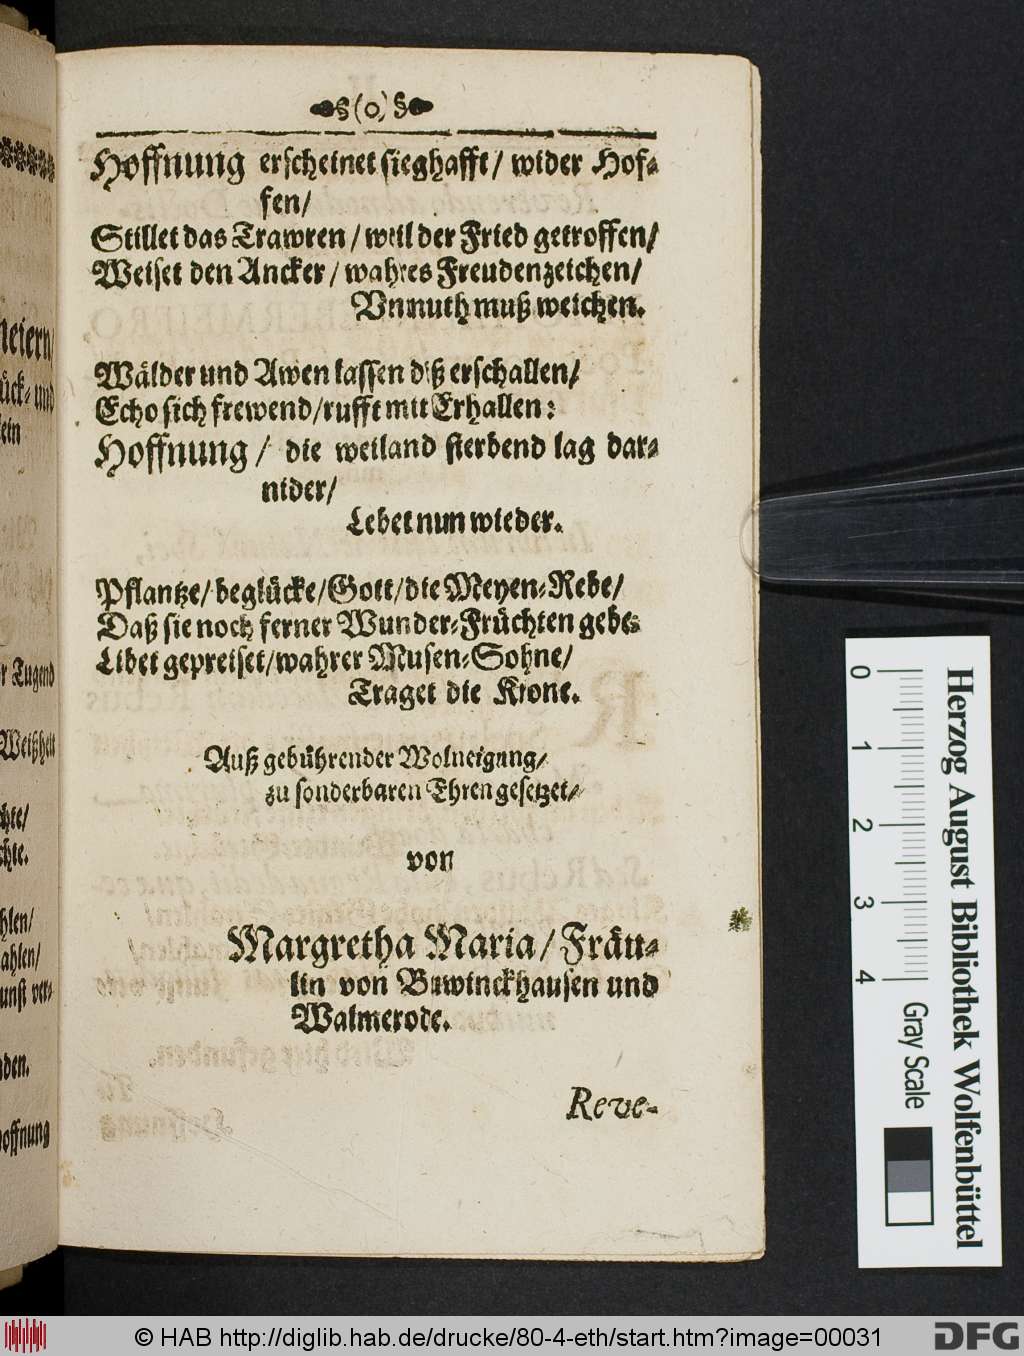 §(o)§
Hoffnung erscheinet sieghafft/ wider Hof-
fen/
Stillet das Trawren/ weil der Fried getroffen/
Weiset den Ancker/ wahres Freudenzeichen/
Vnmuth muß weichen.
Wälder und Awen lassen diß erschallen/
Echo sich frewend/ rufft mit Erhallen:
Hoffnung/ die weiland sterbend lag dar-
nider/
Lebet nun wieder.
Pflantze/ beglücke/ Gott/ die Meyen-Rebe/
Daß sie noch ferner Wunder-Früchten gebe:
Libet gepreiset/ wahrer Musen-Sohne/
Traget die Krone.
Auß gebührender Wolneigung/
zu sonderbaren Ehren gesetzet/
von
Margretha Maria/ Fräu-
lin von Buwinckhausen und
Walmerode.
Reve-
neiern/
ück- und
ein
r Tugend
Weißheit
chte/
chte.
hlen/
ahlen/
unst ver-
nden.
hoffnung
0 1 2 3 4
Gray Scale
Herzog August Bibliothek Wolfenbüttel
© HAB http://diglib.hab.de/drucke/80-4-eth/start.htm?image=00031
DFG